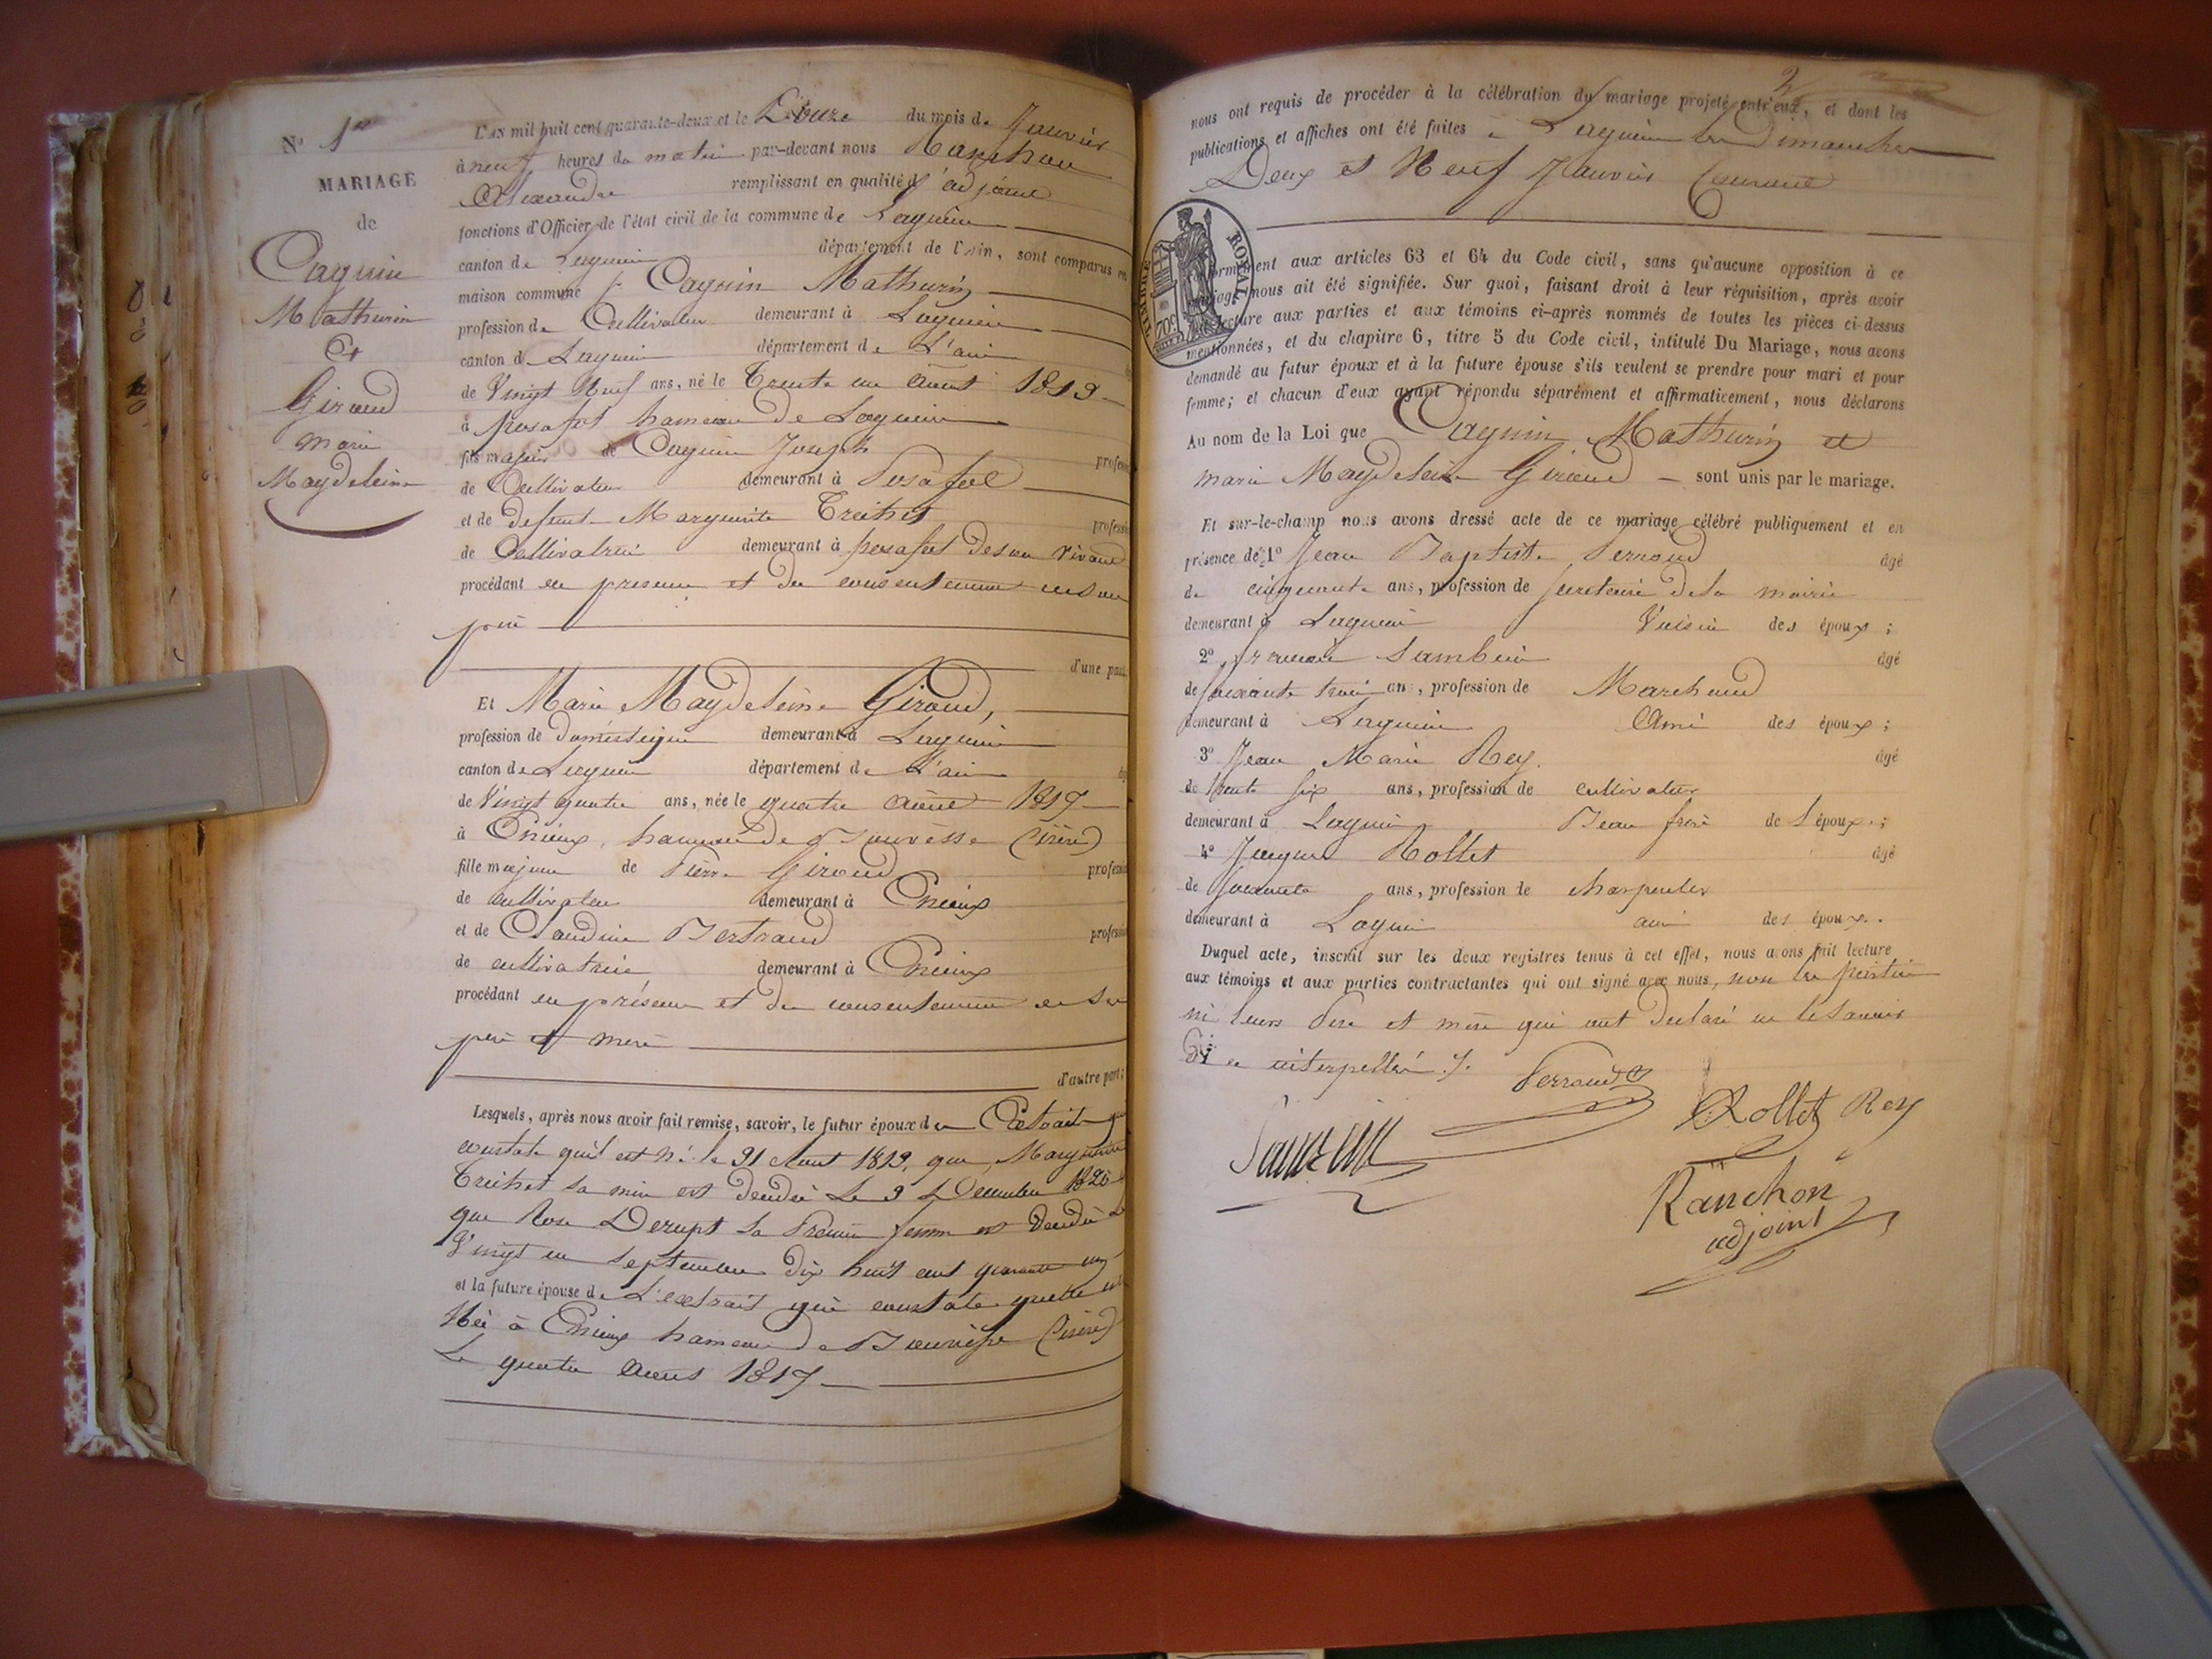 Nº 1er
MARIAGE
de
Caguin
Mathurin
Et
Giroud
Marie
Magdeleine
L'AN mil huit cent quarante-deux et le Douze du mois de Janvier
à neuf heures du matin par-devant nous Ranchon
Alexandre remplissant en qualité d'adjoint
fonctions d'Officier de l'état civil de la commune de Lagnieu
canton de Lagnieu département de l'Ain, sont comparus en
maison commune 1º Caguin Mathurin
profession de Cultivateur demeurant à Lagnieu
canton de Lagnieu département de L'ain
de Vingt Neuf ans, né le Trente un Août 1813
à posafol hameau de Lagnieu
fils majeur de Caguin Joseph profession
de Cultivateur demeurant à Posafol
et de defunte Marguerite Treithet profession
de Cultivatrice demeurant à posafol de son vivant
procédant en presence et du consentement de son
père
d'une part
Et Marie Magdeleine Giroud,
profession de Domestique demeurant à Lagnieu
canton de Lagnieu département de L'ain
de Vingt quatre ans, née le quatre Août 1817
à hameau de (isère)
fille majeure de Pierre Giroud profession
de cultivateur demeurant à
et de Claudine Bertrand profession
de cultivatrice demeurant à
procédant en présence et du consentement de ses
père et mère
d'autre part;
Lesquels, après nous avoir fait remise, savoir, le futur époux de Extraits qui
constate qu'il est né le 31 Aout 1813, que Marguerite
Treithet sa mère est décédée Le 9 Décembre
que Rose Derupt sa Première femme est décédée le
Vingt un septembre dix huit cent quarante un
et la future épouse de L'extrait qui constate qu'elle est
Née à hameau de (isère)
Le quatre Août 1817
2
nous ont requis de procéder à la célébration du mariage projeté entr'eux, et dont les
publications et affiches ont été faites à Lagnieu les Dimanches
Deux et Neuf Janvier Courant
TIMBRE ROYAL
70c
conformément aux articles 63 et 64 du Code civil, sans qu'aucune opposition à ce
mariage nous ait été signifiée. Sur quoi, faisant droit à leur réquisition, après avoir
fait lecture aux parties et aux témoins ci-après nommés de toutes les pièces ci-dessus
mentionnées, et du chapitre 6, titre 5 du Code civil, intitulé Du Mariage, nous avons
demandé au futur époux et à la future épouse s'ils veulent se prendre pour mari et pour
femme; et chacun d'eux ayant répondu séparément et affirmativement, nous déclarons
Au nom de la Loi que Caguin Mathurin et
marie Magdeleine Giroud sont unis par le mariage.
Et sur-le-champ nous avons dressé acte de ce mariage célébré publiquement et en
présence de 1º Jean Baptiste Perroud âgé
de cinquante ans, profession de secretaire de la mairie
demeurant à Lagnieu Voisin des époux;
2º françois Sambuin âgé
de soixante trois ans, profession de Marchand
demeurant à Lagnieu Ami des époux;
3º Jean Marie Rey. âgé
de trente six ans, profession de cultivateur
demeurant à Lagnieu Beau frère de l'époux;
4º Jacques Rollet âgé
de soixante ans, profession de charpentier
demeurant à Lagnieu ami des époux.
Duquel acte, inscrit sur les deux registres tenus à cet effet, nous avons fait lecture
aux témoins et aux parties contractantes qui ont signé avec nous, non les parties
ni leurs Père et mère qui ont déclaré ne le savoir
de ce interpellés ./.
Perroud
Rollet Rey
Ranchon
adjoint